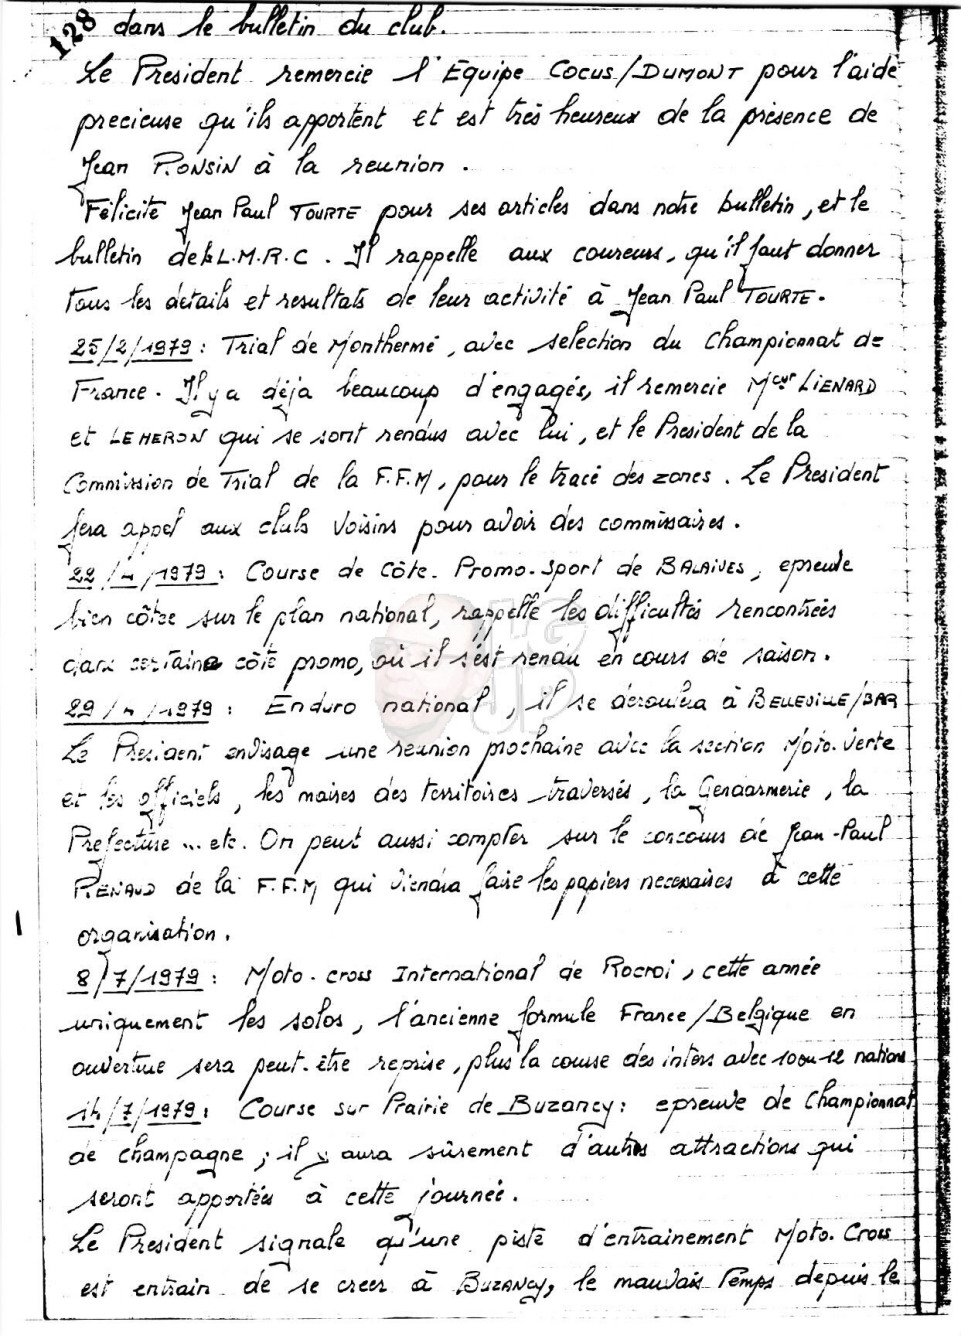 128 dans le bulletin du club.
Le President remercie l'Equipe COCUS/DUMONT pour l'aide
precieuse qu'ils apportent et est très heureux de la présence de
Jean RONSIN à la reunion.
Félicite Jean Paul TOURTE pour ses articles dans notre bulletin, et le
bulletin de la L.M.R.C. Il rappelle aux coureurs, qu'il faut donner
tous les details et resultats de leur activité à Jean Paul TOURTE.
25/2/1979 : Trial de Monthermé, avec selection du Championnat de
France. Il y a déja beaucoup d'engagés, il remercie LIENARD
et LEHERON qui se sont rendus avec lui, et le President de la
Commission de Trial de la F.F.M, pour le tracé des zones. Le President
fera appel aux clubs voisins pour avoir des commissaires.
22/4/1979 : Course de Côte. Promo-Sport de BALAIVES, epreuve
bien côtée sur le plan national, rappelle les difficultés rencontrées
dans certaine côte promo, où il s'est rendu en cours de saison.
29/4/1979 : Enduro national, il se deroulera à BELLEVILLE/BAR
Le President envisage une reunion prochaine avec la section Moto-Verte
et les officiels, les maires des territoires traversés, la Gendarmerie, la
Prefecture ... etc. On peut aussi compter sur le concours de Jean-Paul
RENAUD de la F.F.M qui viendra faire les papiers necessaires à cette
organisation.
8/7/1979 : Moto-cross International de Rocroi, cette année
uniquement les solos, l'ancienne formule France/Belgique en
ouverture sera peut-être reprise, plus la course des inters avec 10 ou 12 nations
14/7/1979 : Course sur Prairie de Buzancy : epreuve de Championnat
de Champagne ; il y aura sûrement d'autres attractions qui
seront apportées à cette journée.
Le President signale qu'une piste d'entrainement Moto-Cross
est entrain de se creer à BUZANCY, le mauvais temps depuis le